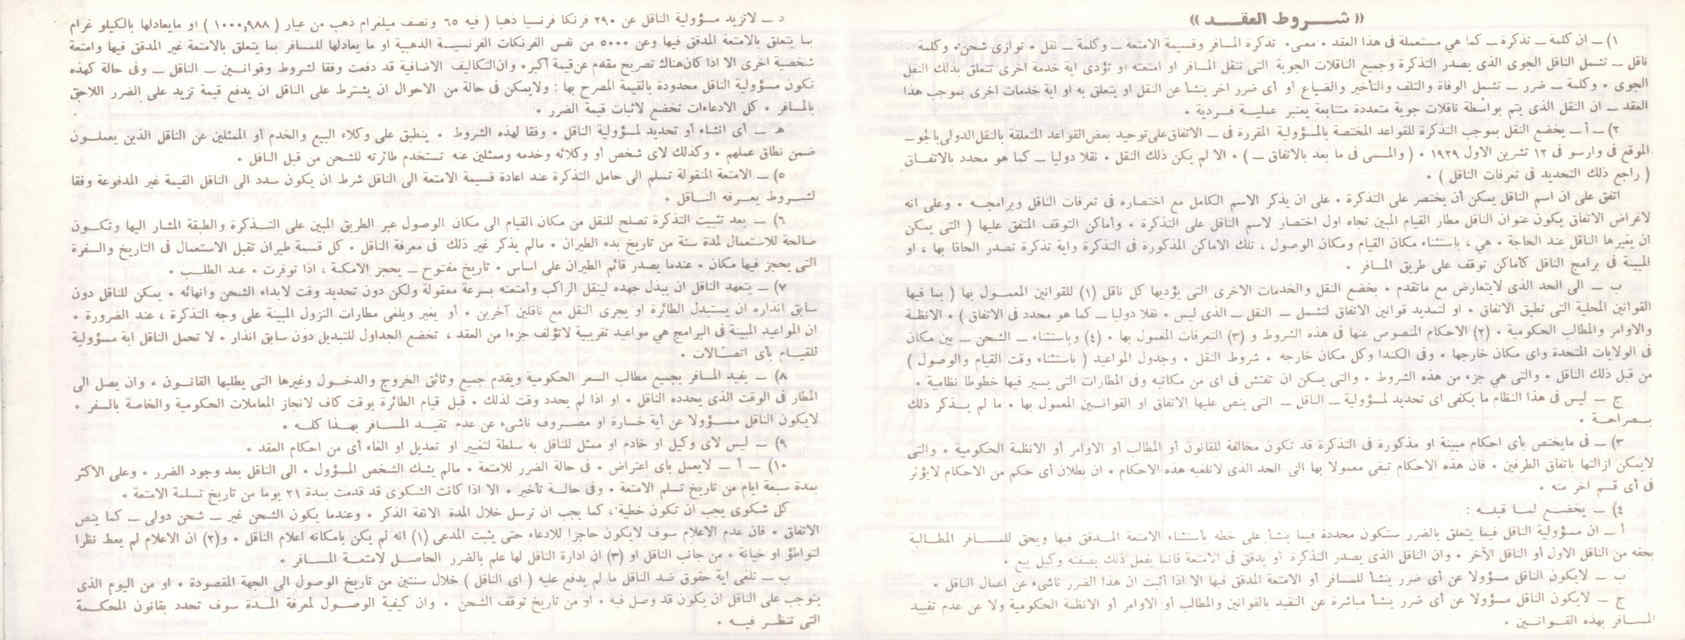 « شروط العقد »
١) ــ ان كلمة ــ تذكرة ــ كما هي مستعملة فى هذا العقد ٠ معنى ٠ تذكرة المسافر وقسيمة الامتعة ــ وكلمة ــ نقل ٠ توازى شحن ٠ وكلمة
ناقل ــ تشمل الناقل الجوى الذى يصدر التذكرة وجميع الناقلات الجوية التى تنقل المسافر او امتعته او تؤدى اية خدمة اخرى تتعلق بذلك النقل
الجوى ٠ وكلمة ــ ضرر ــ تشمل الوفاة والتلف والتأخير والضياع او أى ضرر اخر ينشأ عن النقل او يتعلق به او اية خدمات اخرى بموجب هذا
العقد ــ ان النقل الذى يتم بواسطة ناقلات جوية متعددة متتابعة يعتبر عملية فردية ٠
٢) ــ أ ــ يخضع النقل بموجب التذكرة للقواعد المختصة بالمسؤولية المقررة فى ــ الاتفاق على توحيد بعض القواعد المتعلقة بالنقل الدولى بالجو ــ
الموقع فى وارسو فى ١٢ تشرين الاول ١٩٢٩ ٠ ( والمسمى فى ما بعد بالاتفاق ــ ) ٠ الا لم يكن ذلك النقل ٠ نقلا دوليا ــ كما هو محدد بالاتفاق
( راجع ذلك التحديد فى تعرفات الناقل ) ٠
اتفق على ان اسم الناقل يمكن أن يختصر على التذكرة ٠ على ان يذكر الاسم الكامل مع اختصاره فى تعرفات الناقل وبرامجه ٠ وعلى انه
لاغراض الاتفاق يكون عنوان الناقل مطار القيام المبين تجاه اول اختصار لاسم الناقل على التذكرة ٠ وأماكن التوقف المتفق عليها ( التى يمكن
ان يغيرها الناقل عند الحاجة ٠ هي ، باستثناء مكان القيام ومكان الوصول ، تلك الاماكن المذكورة فى التذكرة واية تذكرة تصدر الحاقا بها ، او
المبينة فى برامج الناقل كأماكن توقف على طريق المسافر ٠
ب ــ الى الحد الذى لايتعارض مع ماتقدم ٠ يخضع النقل والخدمات الاخرى التى يؤديها كل ناقل (١) للقوانين المعمول بها ( بما فيها
القوانين المحلية التى تطبق الاتفاق ٠ او لتمديد قوانين الاتفاق لتشمل ــ النقل ــ الذى ليس ٠ نقلا دوليا ــ كما هو محدد فى الاتفاق ) ٠ الانظمة
والاوامر والمطالب الحكومية ٠ (٢) الاحكام المنصوص عنها فى هذه الشروط و (٣) التعرفات المعمول بها ٠ (٤) وباستثناء ــ الشحن ــ بين مكان
فى الولايات المتحدة واى مكان خارجها ٠ وفى الكندا وكل مكان خارجه ٠ شروط النقل ٠ وجدول المواعيد ( باستثناء وقت القيام والوصول )
من قبل ذلك الناقل ٠ والتى هي جزء من هذه الشروط ٠ والتى يمكن ان تفتش فى اى من مكاتبه وفى المطارات التى يسير فيها خطوطا نظامية ٠
ج ــ ليس فى هذا النظام ما يكفى اى تحديد لمسؤولية ــ الناقل ــ التى ينص عليها الاتفاق او القوانين المعمول بها ٠ ما لم يذكر ذلك
بصراحة ٠
٣) ــ فى مايختص بأى احكام مبينة او مذكورة فى التذكرة قد تكون مخالفة للقانون أو المطالب أو الاوامر أو الانظمة الحكومية ٠ والتى
لايمكن ازالتها باتفاق الطرفين ٠ فان هذه الاحكام تبقى معمولا بها الى الحد الذى لاتلغيه هذه الاحكام ٠ ان بطلان أى حكم من الاحكام لايؤثر
فى أى قسم اخر منه ٠
٤) ــ يخضع لما قبله :
أ ــ ان مسؤولية الناقل فيما يتعلق بالضرر ستكون محددة فيما ينشأ على خطه باستثناء الامتعة المدقق فيها ويحق للمسافر المطالبة
بحقه من الناقل الاول او الناقل الآخر ٠ وان الناقل الذى يصدر التذكرة او يدقق فى الامتعة فانما يفعل ذلك بصفته وكيل بيع ٠
ب ــ لايكون الناقل مسؤولا عن أى ضرر ينشأ للمسافر أو الامتعة المدقق فيها الا اذا أثبت ان هذا الضرر ناشىء عن اعمال الناقل ٠
ج ــ لايكون الناقل مسؤولا عن أى ضرر ينشأ مباشرة عن التقيد بالقوانين والمطالب أو الاوامر أو الانظمة الحكومية ولا عن عدم تقييد
المسافر بهذه القوانين ٠
د ــ لاتزيد مسؤولية الناقل عن ٢٩٠ فرنكا فرنسيا ذهبا ( فيه ٦٥ ونصف ميلغرام ذهب من عيار ( ١٠٠٠,٩٨٨ ) او مايعادلها بالكيلو غرام
بما يتعلق بالامتعة المدقق فيها وعن ٥٠٠٠ من نفس الفرنكات الفرنسية الذهبية او ما يعادلها للمسافر بما يتعلق بالامتعة غير المدقق فيها وامتعة
شخصية اخرى الا اذا كان هناك تصريح مقدم عن قيمة أكبر ٠ وان التكاليف الاضافية قد دفعت وفقا لشروط وقوانين ــ الناقل ــ وفى حالة كهذه
تكون مسؤولية الناقل محدودة بالقيمة المصرح بها : ولايمكن فى حالة من الاحوال ان يشترط على الناقل ان يدفع قيمة تزيد على الضرر اللاحق
بالمسافر ٠ كل الادعاءات تخضع لاثبات قيمة الضرر ٠
هـ ــ أى انشاء أو تحديد لمسؤولية الناقل ٠ وفقا لهذه الشروط ٠ ينطبق على وكلاء البيع والخدم أو الممثلين عن الناقل الذين يعملون
ضمن نطاق عملهم ٠ وكذلك لاى شخص أو وكلائه وخدمه وممثلين عنه تستخدم طائرته للشحن من قبل الناقل ٠
٥) ــ الامتعة المنقولة تسلم الى حامل التذكرة عند اعادة قسيمة الامتعة الى الناقل شرط ان يكون سدد الى الناقل القيمة غير المدفوعة وفقا
لشروط يعرفه الناقل ٠
٦) ــ بعد تثبيت التذكرة تصلح للنقل من مكان القيام الى مكان الوصول عبر الطريق المبين على التذكرة والطبقة المشار اليها وتكون
صالحة للاستعمال لمدة سنة من تاريخ بدء الطيران ٠ مالم يذكر غير ذلك فى معرفة الناقل ٠ كل قسيمة طيران تقبل الاستعمال فى التاريخ والسفرة
التى يحجز فيها مكان ٠ عندما يصدر قائم الطيران على اساس ٠ تاريخ مفتوح ــ يحجز الامكنة ، اذا توفرت ٠ عند الطلب ٠
٧) ــ يتعهد الناقل ان يبذل جهده لينقل الراكب وأمتعته بسرعة معقولة ولكن دون تحديد وقت لابداء الشحن وانهائه ٠ يمكن للناقل دون
سابق انذاره ان يستبدل الطائرة او يجرى النقل مع ناقلين آخرين ٠ أو يغير ويلغى مطارات النزول المبينة على وجه التذكرة ، عند الضرورة ٠
ان المواعيد المبينة فى البرامج هي مواعيد تقريبية لاتؤلف جزءا من العقد ، تخضع الجداول للتبديل دون سابق انذار ٠ لا تحمل الناقل اية مسؤولية
للقيام بأى اتصالات ٠
٨) ــ يتقيد المسافر بجميع مطالب السفر الحكومية ويقدم جميع وثائق الخروج والدخول وغيرها التى يطلبها القانون ٠ وان يصل الى
المطار فى الوقت الذى يحدده الناقل ٠ او اذا لم يحدد وقت لذلك ٠ قبل قيام الطائرة بوقت كاف لانجاز المعاملات الحكومية والخاصة بالسفر ٠
لايكون الناقل مسؤولا عن أية خسارة او مصروف ناشىء عن عدم تقيد المسافر بهذا كله ٠
٩) ــ ليس لاى وكيل او خادم او ممثل للناقل به سلطة لتغيير او تعديل او الغاء أى من احكام العقد ٠
١٠) ــ أ ــ لايعمل بأى اعتراض ٠ فى حالة الضرر للامتعة ٠ مالم يشك الشخص المسؤول ٠ الى الناقل بعد وجود الضرر ٠ وعلى الاكثر
بمدة سبعة ايام من تاريخ تسلم الامتعة ٠ وفى حالة تأخير ٠ الا اذا كانت الشكوى قد قدمت بمدة ٢١ يوما من تاريخ تسلمة الامتعة ٠
كل شكوى يجب ان تكون خطية ، كما يجب ان ترسل خلال المدة الانفة الذكر ٠ وعندما يكون الشحن غير ــ شحن دولى ــ كما ينص
الاتفاق ٠ فان عدم الاعلام سوف لايكون حاجزا للادعاء حتى يثبت المدعى (١) انه لم يكن بامكانه اعلام الناقل ٠ و(٢) ان الاعلام لم يعط نظرا
لتواطؤ او خيانة ٠ من جانب الناقل او (٣) ان ادارة الناقل لها علم بالضرر الحاصل لامتعة المسافر ٠
ب ــ تلغى اية حقوق ضد الناقل ما لم يدفع عليه ( اى الناقل ) خلال سنتين من تاريخ الوصول الى الجهة المقصودة ٠ او من اليوم الذى
يتوجب على الناقل ان يكون قد وصل فيه ٠ او من تاريخ توقف الشحن ٠ وان كيفية الوصول لمعرفة المدة سوف تحدد بقانون المحكمة
التى تنظر فيه ٠